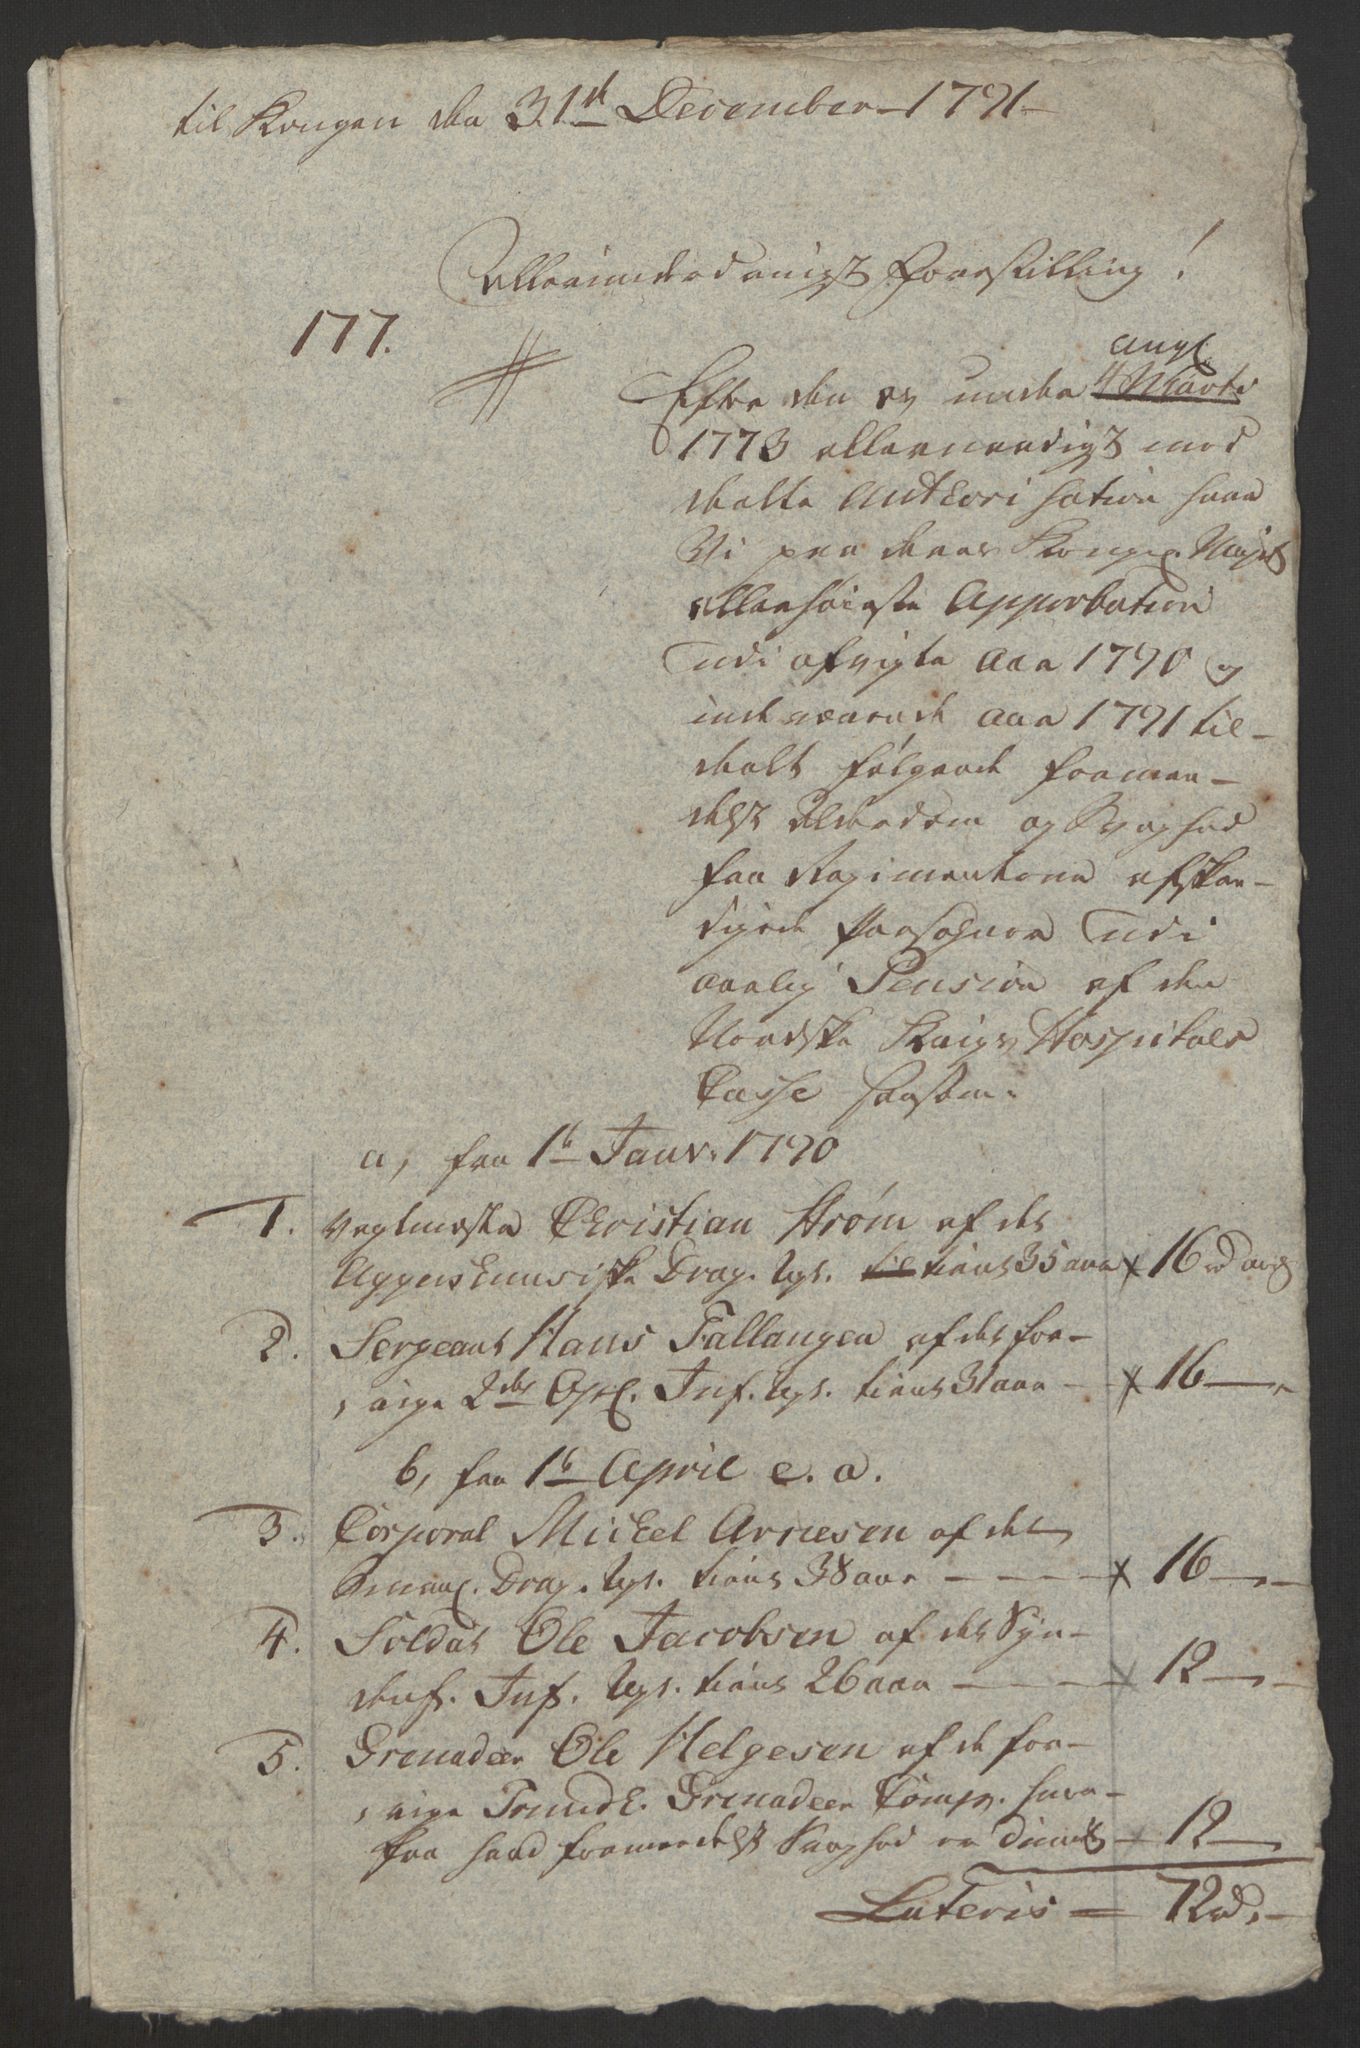 til Kongen den 31te December 1791
Allerunderdanigst Forestilling!
177.
angl.
Efter den os under 4 Marti
1773 allernaadigst med
deelte Authorisation have
Vi paa deres Kongel. Majts
allerhøieste Approbation
udi afvigte Aar 1790 og
indeværende Aar 1791 til-
deelt følgende forme-
delst Alderdom og Svaghed
fra Regimenterne afskee-
digede Personer udi
aarlig Pension af den
Norske Krigs Hospitals
Casse saasom:
a, fra 1te Janv. 1790
1. Vagtmester Christian Strøm af det
Aggershuusiske Drag. Rgt. tient 35 aar × 16 rd aarl
2. Sergeant Hans Fallangen af det for-
rige 2det Opl. Inf. Rgt. tient 31 aar - × 16 —
b, fra 1te April e. a.
3. Corporal Michel Arnesen af det
Smaal. Drag. Rgt. tient 38 aar - - - - × 16 —
4. Soldat Ole Jacobsen af det Syn-
denf. Inf. Rgt. tient 26 aar - - - - × 12 —
5. Grenadeer Ole Helgesen af de for-
rige Trundh. Grenadeer Comp. hvor-
fra hand formedelst Svaghed er dimit. - × 12 —
Lateris = 72 rd. -